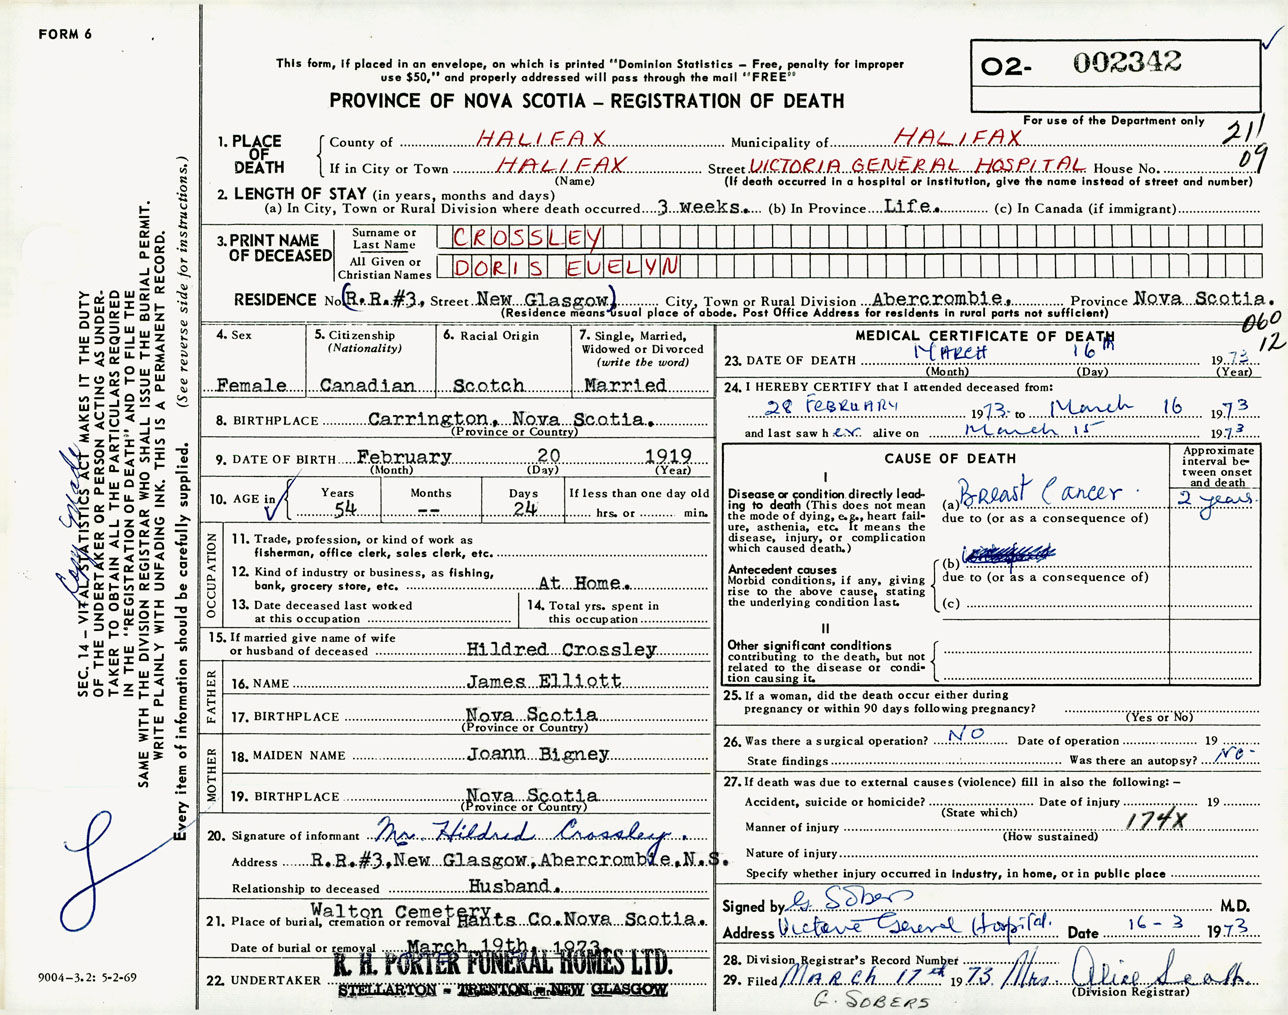 FORM 6
This form, if placed in an envelope, on which is printed "Dominion Statistics – Free, penalty for improper
use $50," and properly addressed will pass through the mail "FREE"
PROVINCE OF NOVA SCOTIA – REGISTRATION OF DEATH
02- 002342
For use of the Department only
211
09
1. PLACE OF DEATH
County of HALIFAX Municipality of HALIFAX
If in City or Town HALIFAX Street VICTORIA GENERAL HOSPITAL House No.
(Name) (If death occurred in a hospital or institution, give the name instead of street and number)
2. LENGTH OF STAY (in years, months and days)
(a) In City, Town or Rural Division where death occurred 3 weeks. (b) In Province Life. (c) In Canada (if immigrant)
3. PRINT NAME OF DECEASED
Surname or Last Name CROSSLEY
All Given or Christian Names DORIS EVELYN
RESIDENCE No (R.R.#3, Street New Glasgow) City, Town or Rural Division Abercrombie. Province Nova Scotia.
(Residence means usual place of abode. Post Office Address for residents in rural parts not sufficient)
060
12
4. Sex
Female
5. Citizenship
(Nationality)
Canadian
6. Racial Origin
Scotch
7. Single, Married,
Widowed or Divorced
(write the word)
Married
8. BIRTHPLACE Carrington, Nova Scotia.
(Province or Country)
9. DATE OF BIRTH February 20 1919
(Month) (Day) (Year)
10. AGE in
Years Months Days If less than one day old
54 -- 24 hrs. or min.
OCCUPATION
11. Trade, profession, or kind of work as
fisherman, office clerk, sales clerk, etc.
12. Kind of industry or business, as fishing,
bank, grocery store, etc. At Home.
13. Date deceased last worked
at this occupation
14. Total yrs. spent in
this occupation
15. If married give name of wife
or husband of deceased Hildred Crossley
FATHER
16. NAME James Elliott
17. BIRTHPLACE Nova Scotia
(Province or Country)
MOTHER
18. MAIDEN NAME Joann Bigney
19. BIRTHPLACE Nova Scotia
(Province or Country)
20. Signature of informant Mr. Hildred Crossley.
Address R.R.#3, New Glasgow, Abercrombie, N.S.
Relationship to deceased Husband.
21. Place of burial, cremation or removal Walton Cemetery, Hants Co. Nova Scotia.
Date of burial or removal March 19th, 1973
22. UNDERTAKER R. H. PORTER FUNERAL HOMES LTD.
STELLARTON - TRENTON - NEW GLASGOW
MEDICAL CERTIFICATE OF DEATH
23. DATE OF DEATH MARCH 16th 1973
(Month) (Day) (Year)
24. I HEREBY CERTIFY that I attended deceased from:
28 FEBRUARY 1973 to March 16 1973
and last saw her alive on March 15 1973
CAUSE OF DEATH
Approximate
interval be-
tween onset
and death
I
Disease or condition directly lead-
ing to death (This does not mean
the mode of dying, e.g., heart fail-
ure, asthenia, etc. It means the
disease, injury, or complication
which caused death.)
(a) Breast Cancer. 2 years
due to (or as a consequence of)
Antecedent causes
Morbid conditions, if any, giving
rise to the above cause, stating
the underlying condition last.
(b)
due to (or as a consequence of)
(c)
II
Other significant conditions
contributing to the death, but not
related to the disease or condi-
tion causing it.
25. If a woman, did the death occur either during
pregnancy or within 90 days following pregnancy?
(Yes or No)
26. Was there a surgical operation? NO Date of operation 19
State findings Was there an autopsy? NO-
27. If death was due to external causes (violence) fill in also the following: –
Accident, suicide or homicide? Date of injury 19
(State which)
Manner of injury 174X
(How sustained)
Nature of injury
Specify whether injury occurred in Industry, in home, or in public place
Signed by G. SOBERS M.D.
Address Victoria General Hospital. Date 16-3 1973
28. Division Registrar's Record Number
29. Filed MARCH 17th 1973 Mrs. Alice
(Division Registrar)
G. SOBERS
SEC. 14 – VITAL STATISTICS ACT MAKES IT THE DUTY
OF THE UNDERTAKER OR PERSON ACTING AS UNDER-
TAKER TO OBTAIN ALL THE PARTICULARS REQUIRED
IN THE "REGISTRATION OF DEATH" AND TO FILE THE
SAME WITH THE DIVISION REGISTRAR WHO SHALL ISSUE THE BURIAL PERMIT.
WRITE PLAINLY WITH UNFADING INK. THIS IS A PERMANENT RECORD.
Every item of information should be carefully supplied. (See reverse side for instructions.)
9004-3.2: 5-2-69